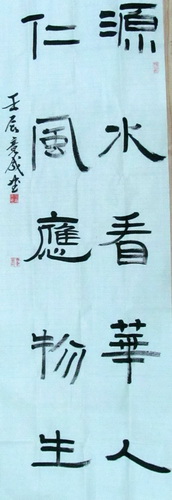 源水看華人
仁風應物生
壬辰